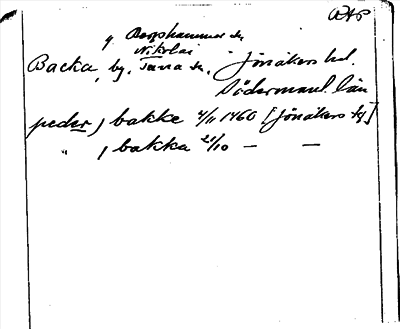 RAP
g Bergshammar sn
Nikolai
Backa, by, Tuna sn, Jönåkers hd.
Södermanl. län
peder j bakke 4/11 1460 [Jönåkers hg]
" j bakka 21/10 — —